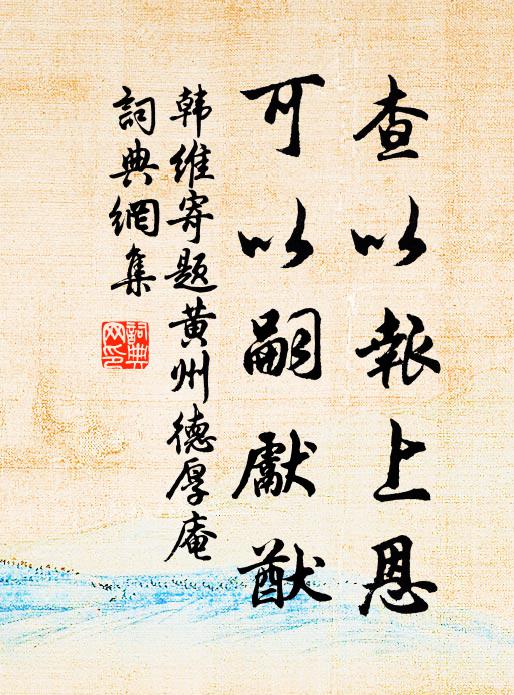 查以報上恩
可以嗣獻猷
韩維寄題黄州德厚庵
詞典網集
詞典網印